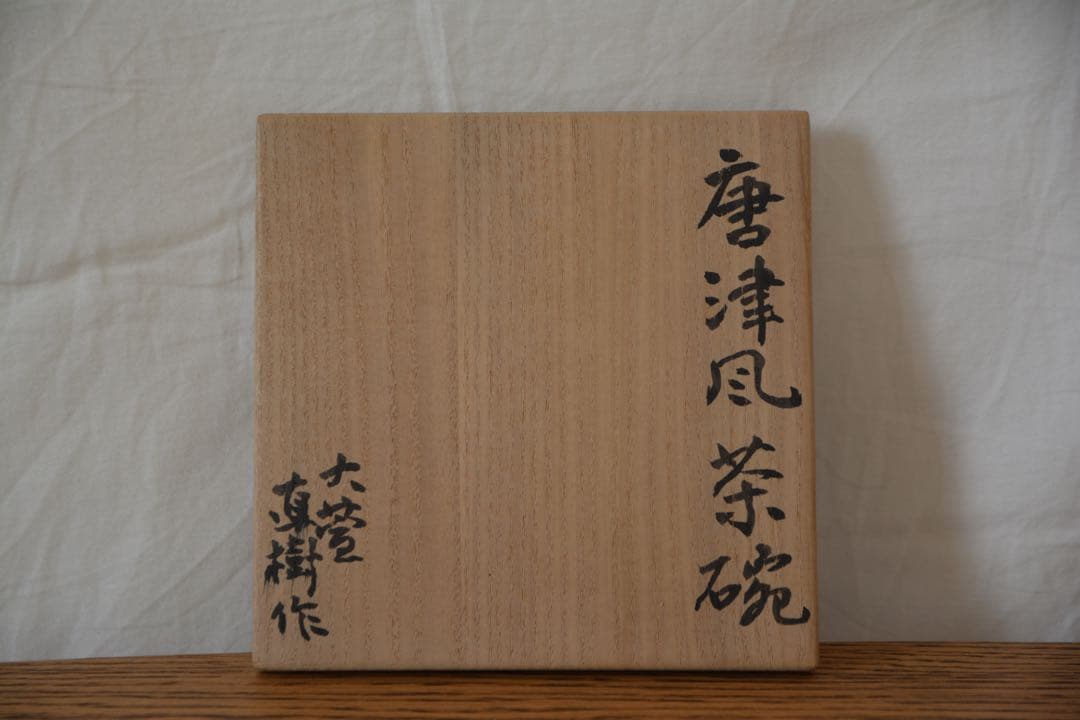 唐津風茶碗
大萱
直樹作